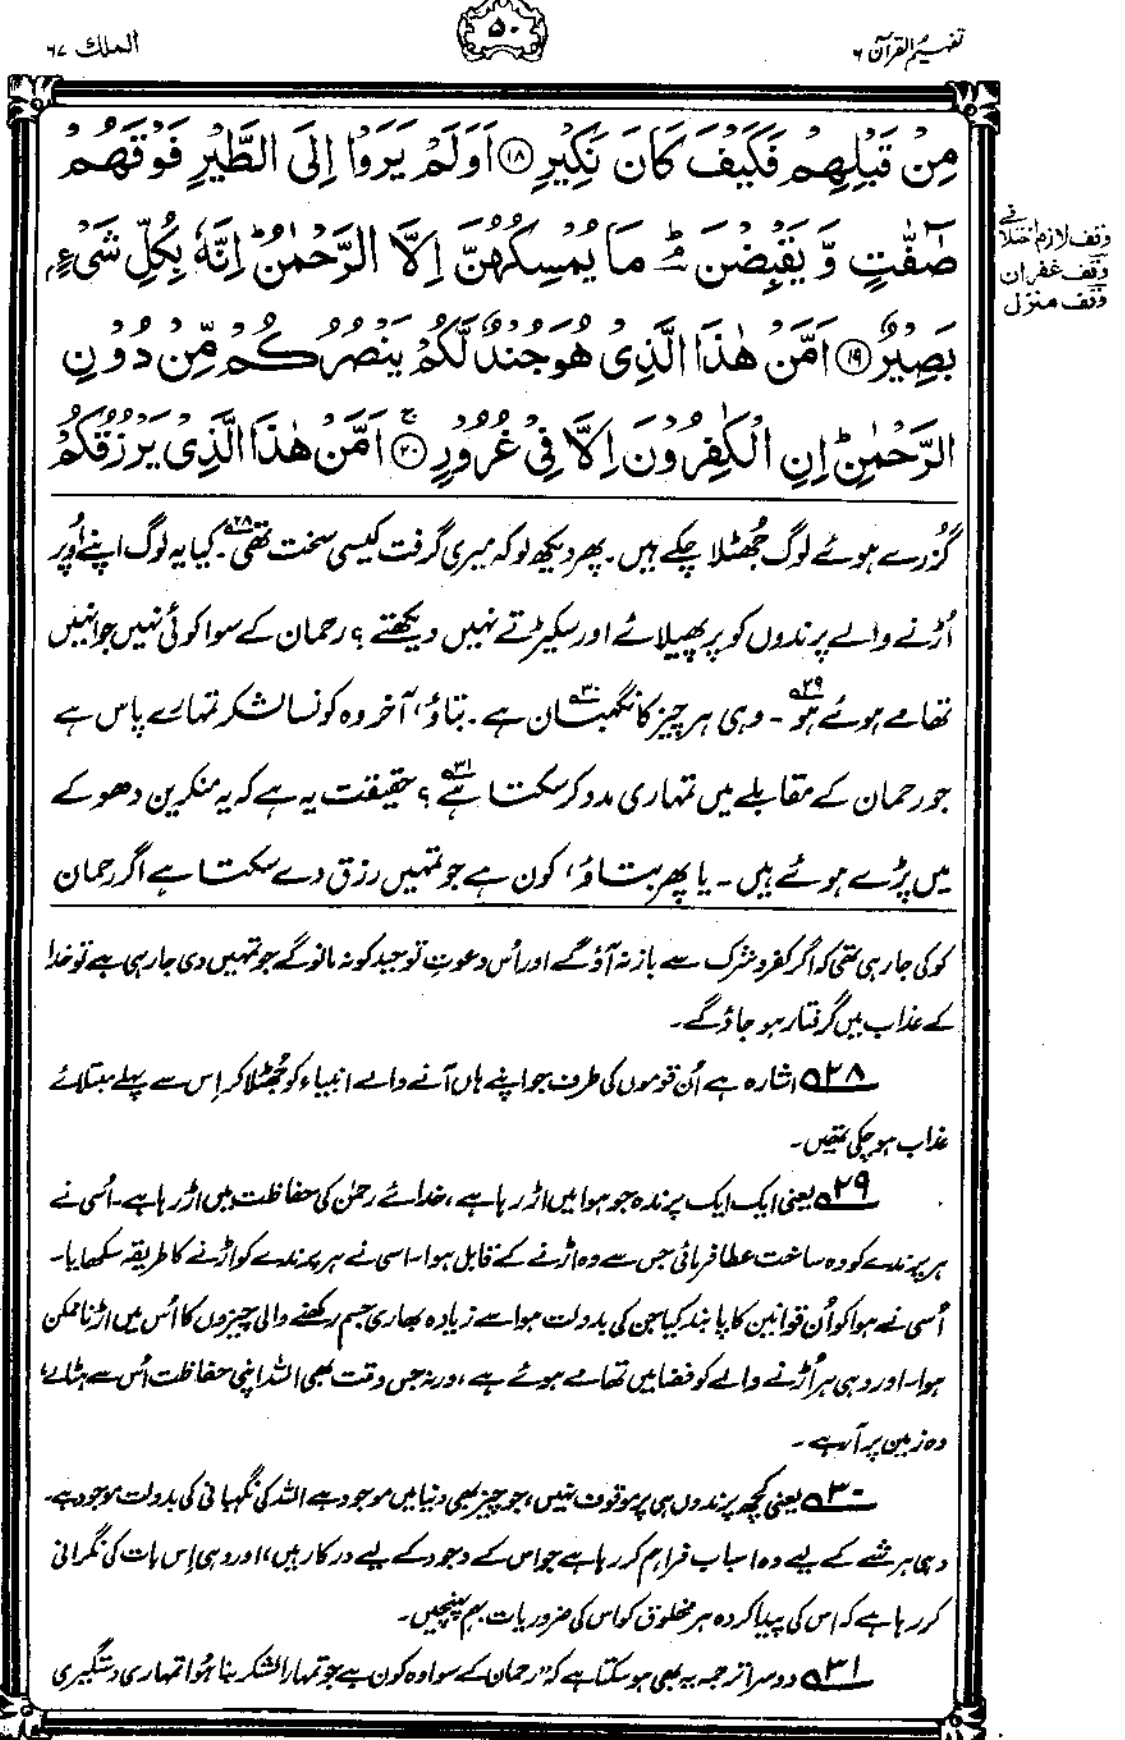 تفہیم القرآن ۶
۵۰
الملک ۶۷
مِنْ قَبْلِهِمْ فَكَيْفَ كَانَ نَكِيْرِ ﴿۱۸﴾ اَوَلَمْ يَرَوْا اِلَى الطَّيْرِ فَوْقَهُمْ
صٰٓفّٰتٍ وَّ يَقْبِضْنَ ؔۘ مَا يُمْسِكُهُنَّ اِلَّا الرَّحْمٰنُ ؕ اِنَّهٗ بِكُلِّ شَیْءٍۭ
بَصِيْرٌ ﴿۱۹﴾ اَمَّنْ هٰذَا الَّذِیْ هُوَ جُنْدٌ لَّكُمْ يَنْصُرُكُمْ مِّنْ دُوْنِ
الرَّحْمٰنِ ؕ اِنِ الْكٰفِرُوْنَ اِلَّا فِیْ غُرُوْرٍ ۚ﴿۲۰﴾ اَمَّنْ هٰذَا الَّذِیْ يَرْزُقُكُمْ
وقف لازم اختلافی
وقف غفران
وقف منزل
گزرے ہوئے لوگ جُھٹلا چکے ہیں۔ پھر دیکھ لو کہ میری گرفت کیسی سخت تھی۲۸۔ کیا یہ لوگ اپنے اُوپر
اُڑنے والے پرندوں کو پر پھیلائے اور سکیڑتے نہیں دیکھتے ؟ رحمان کے سوا کوئی نہیں جو انہیں
تھامے ہوئے ہو۲۹ - وہی ہر چیز کا نگہبان۳۰ ہے۔ بتاؤ، آخر وہ کونسا لشکر تمہارے پاس ہے
جو رحمان کے مقابلے میں تمہاری مدد کر سکتا ہے۳۱ ؟ حقیقت یہ ہے کہ یہ منکرین دھوکے
میں پڑے ہوئے ہیں۔ یا پھر بتاؤ، کون ہے جو تمہیں رزق دے سکتا ہے اگر رحمان
کو کی جا رہی تھی کہ اگر کفر و شرک سے باز نہ آؤ گے اور اُس دعوتِ توحید کو نہ مانو گے جو تمہیں دی جا رہی ہے تو خدا
کے عذاب میں گرفتار ہو جاؤ گے۔
۲۸ اشارہ ہے اُن قوموں کی طرف جو اپنے ہاں آنے والے انبیاء کو جُھٹلا کر اِس سے پہلے مبتلائے
عذاب ہو چکی تھیں۔
۲۹ یعنی ایک ایک پرندہ جو ہوا میں اڑ رہا ہے، خدائے رحمٰن کی حفاظت میں اڑ رہا ہے۔ اُسی نے
ہر پرندے کو وہ ساخت عطا فرمائی جس سے وہ اڑنے کے قابل ہوا۔ اسی نے ہر پرندے کو اڑنے کا طریقہ سکھایا۔
اُسی نے ہوا کو اُن قوانین کا پابند کیا جن کی بدولت ہوا سے زیادہ بھاری جسم رکھنے والی چیزوں کا اُس میں اڑنا ممکن
ہوا۔ اور وہی ہر اُڑنے والے کو فضا میں تھامے ہوئے ہے، ورنہ جس وقت بھی اللہ اپنی حفاظت اُس سے ہٹا لے،
وہ زمین پر آ رہے۔
۳۰ یعنی کچھ پرندوں ہی پر موقوف نہیں، جو چیز بھی دنیا میں موجود ہے اللہ کی نگہبانی کی بدولت موجود ہے۔
وہی ہر شے کے لیے وہ اسباب فراہم کر رہا ہے جو اس کے وجود کے لیے درکار ہیں، اور وہی اِس بات کی نگرانی
کر رہا ہے کہ اس کی پیدا کردہ ہر مخلوق کو اس کی ضروریات بہم پہنچیں۔
۳۱ دوسرا ترجمہ یہ بھی ہو سکتا ہے کہ "رحمان کے سوا وہ کون ہے جو تمہارا لشکر بنا ہُوا تمہاری دستگیری